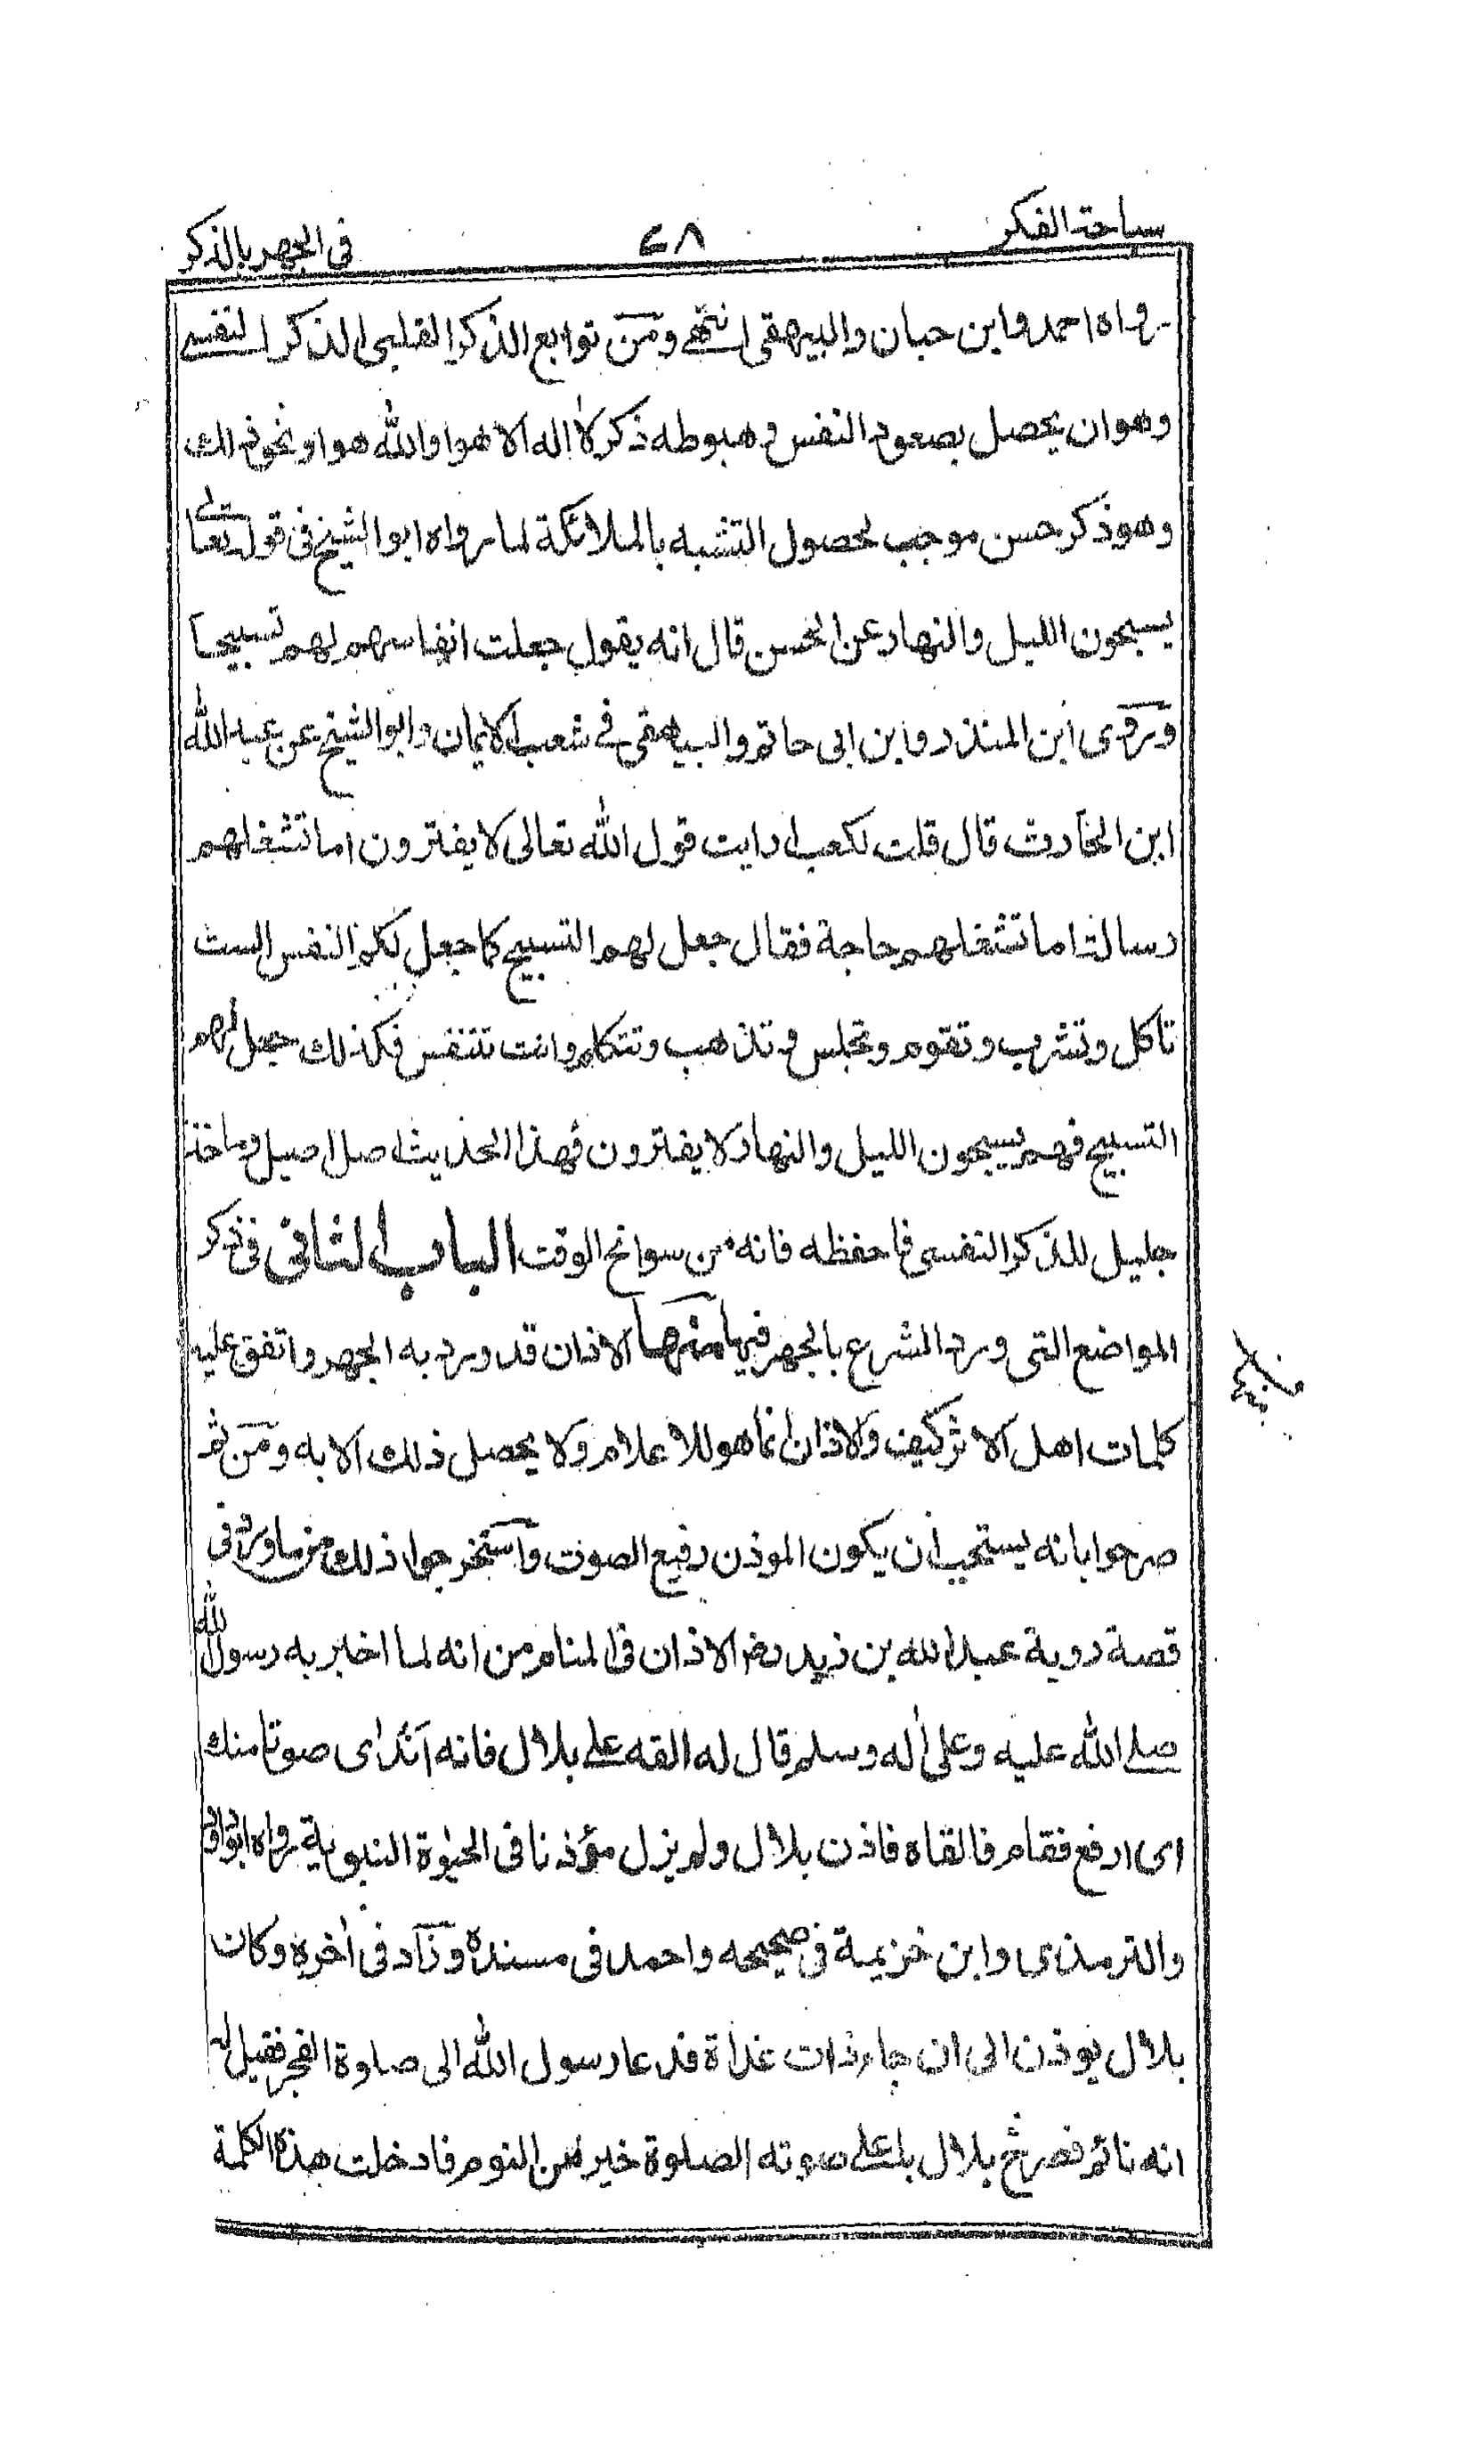 سباحة الفكر ٤٨ فى الجهر بالذكر
رواه احمد وابن حبان والبيهقى انتهى ومن توابع الذكر القلبى الذكر النفسے
وهو ان يحصل بصعود النفس وهبوطه ذكر لا اله الا هو او الله هو او نحو ذلك
وهو ذكر حسن موجب لحصول التشبه بالملائكة لما رواه ابو الشيخ فى قوله تعالے
يسبحون الليل والنهار عن الحسن قال انه يقول جعلت انفاسهم لهم تسبيحا
وروى ابن المنذر وابن ابى حاتم والبيهقى فے شعب الايمان وابو الشيخ عن عبد الله
ابن الحارث قال قلت لكعب ارايت قول الله تعالى لا يفترون اما تشغلهم
رسالة اما تشغلهم حاجة فقال جعل لهم التسبيح كما جعل لكم النفس الست
تاكل وتشرب وتقوم وتجلس وتذهب وتتكلم وانت تتنفس فكذلك جعل لهم
التسبيح فهم يسبحون الليل والنهار لا يفترون فهذا الحديث اصل اصيل وماخذ
جليل للذكر النفسى فاحفظه فانه من سوانح الوقت الباب الثانى فى ذكر
المواضع التى ورد الشرع بالجهر فيها منها الاذان قد ورد به الجهر واتفق عليه
كلمات اهل الاثر كيف والاذان انما هو للاعلام ولا يحصل ذلك الا به ومن ثم
صرحوا بانه يستحب ان يكون الموذن رفيع الصوت واستخرجوا ذلك من ما ورد فى
قصة روية عبد الله بن زيد رض الاذان فى المنام من انه لما اخبر به رسول الله
صلے الله عليه وعلى اله وسلم قال له القه علے بلال فانه اندى صوتا منك
اى ارفع فقام فالقاه فاذن بلال ولم يزل مؤذنا فى الحيوة النبوية رواه ابو داود
والترمذى وابن خزيمة فى صحيحه واحمد فى مسنده وزاد فى اخره وكان
بلال يوذن الى ان جاء ذات غداة فدعا رسول الله الى صلوة الفجر فقيل له
انه نائم فصرخ بلال باعلے صوته الصلوة خير من النوم فادخلت هذه الكلمة